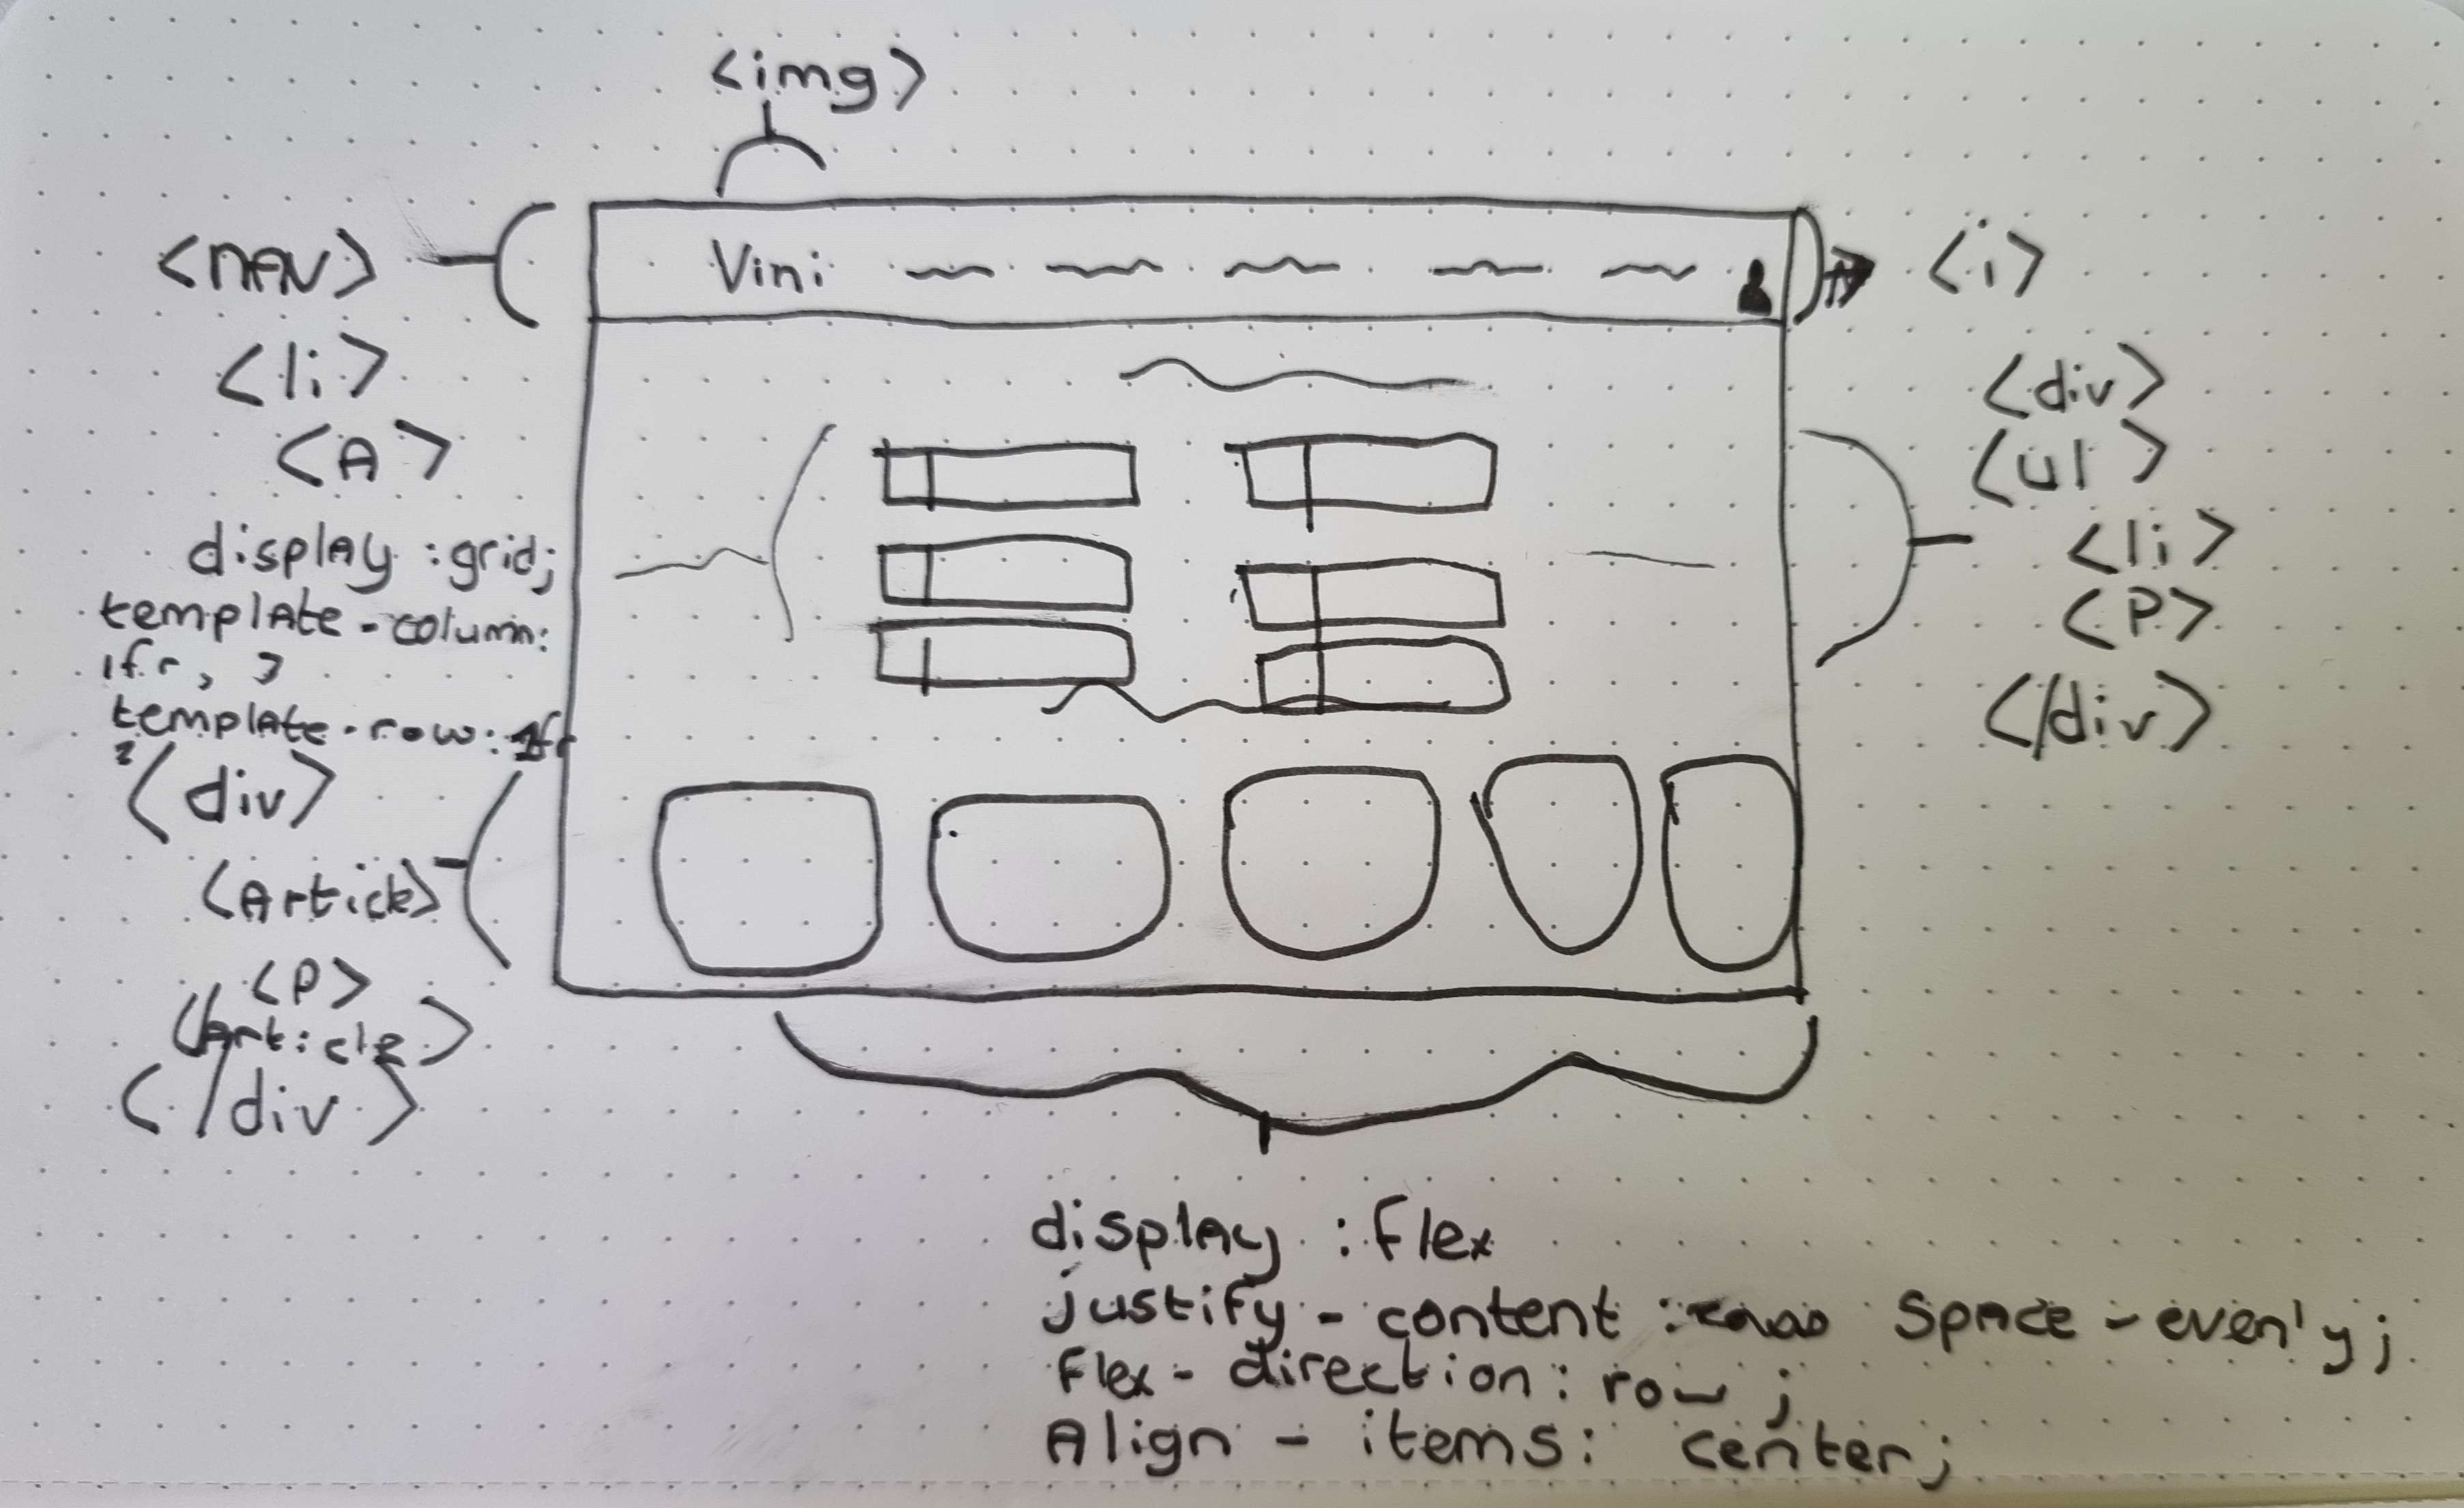 <img>
<nAV>
Vini
<i>
<li>
<A>
display : grid;
template - column:
1fr,
template - row: 1fr
<div>
<Article>
<P>
</Article>
</div>
<div>
<ul>
<li>
<P>
</div>
display : flex
justify - content : space - evenly;
flex - direction: row ;
Align - items: center;